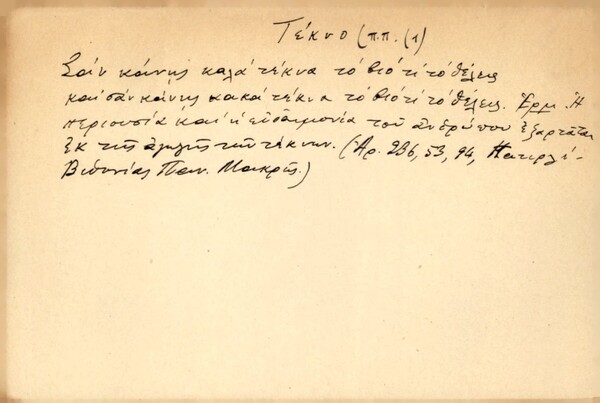 Τέκνο (π.π. (1)
Σάν κάνῃς καλά τέκνα τό βιό τί τό θέλεις
καί σάν κάνῃς κακά τέκνα τό βιό τί τό θέλεις. Ἑρμ. Ἡ
περιουσία καί ἡ εὐδαιμονία τοῦ ἀνθρώπου ἐξαρτᾶται
ἐκ τῆς ἀγωγῆς τῶν τέκνων. (Ἀρ. 236, 53, 94,
Βιθυνίας Παν. Μακρῆς.)